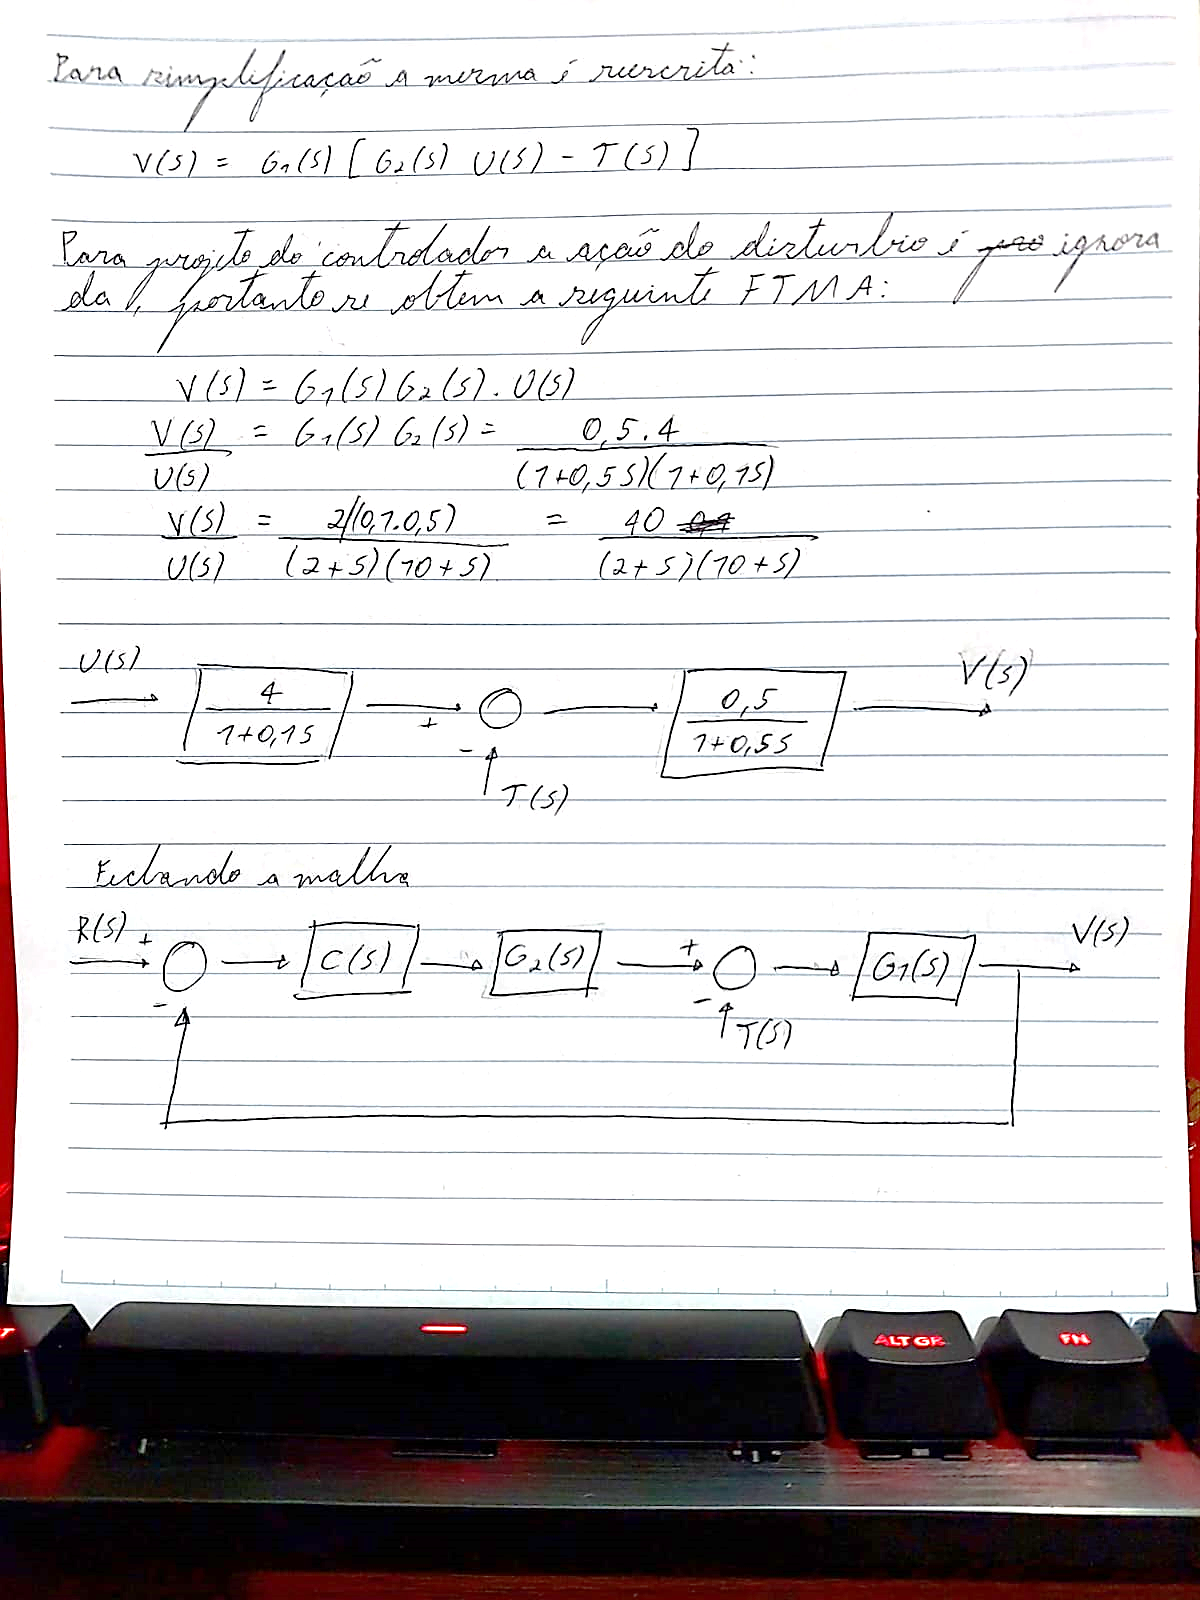 Para simplificação a mesma é reescrita:
V(s) = G1(s) [G2(s) U(s) - T(s)]
Para projeto do controlador a ação do disturbio é ignora
da, portanto se obtem a seguinte FTMA:
V(s) = G1(s) G2(s) . U(s)
V(s)/U(s) = G1(s) G2(s) = 0,5.4/(1+0,5s)(1+0,1s)
V(s)/U(s) = 2/(0,1.0,5)/(2+s)(10+s) = 40/(2+s)(10+s)
U(s) 4/1+0,1s + - T(s) 0,5/1+0,5s V(s)
Fechando a malha
R(s) + - C(s) G2(s) + - T(s) G1(s) V(s)
ALT GR FN